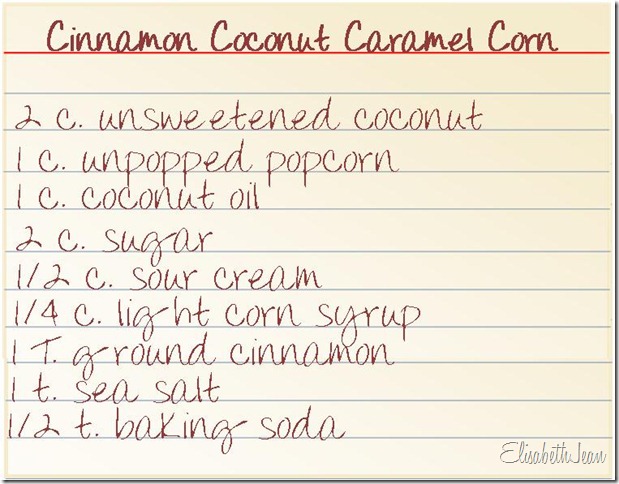 Cinnamon Coconut Caramel Corn
2 c. unsweetened coconut
1 c. unpopped popcorn
1 c. coconut oil
2 c. sugar
1/2 c. sour cream
1/4 c. light corn syrup
1 T. ground cinnamon
1 t. sea salt
1/2 t. baking soda
ElisabethJean